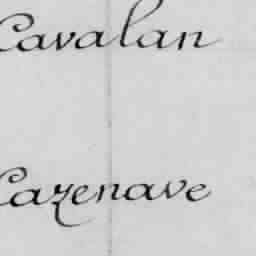 Cavalan
Cazenave